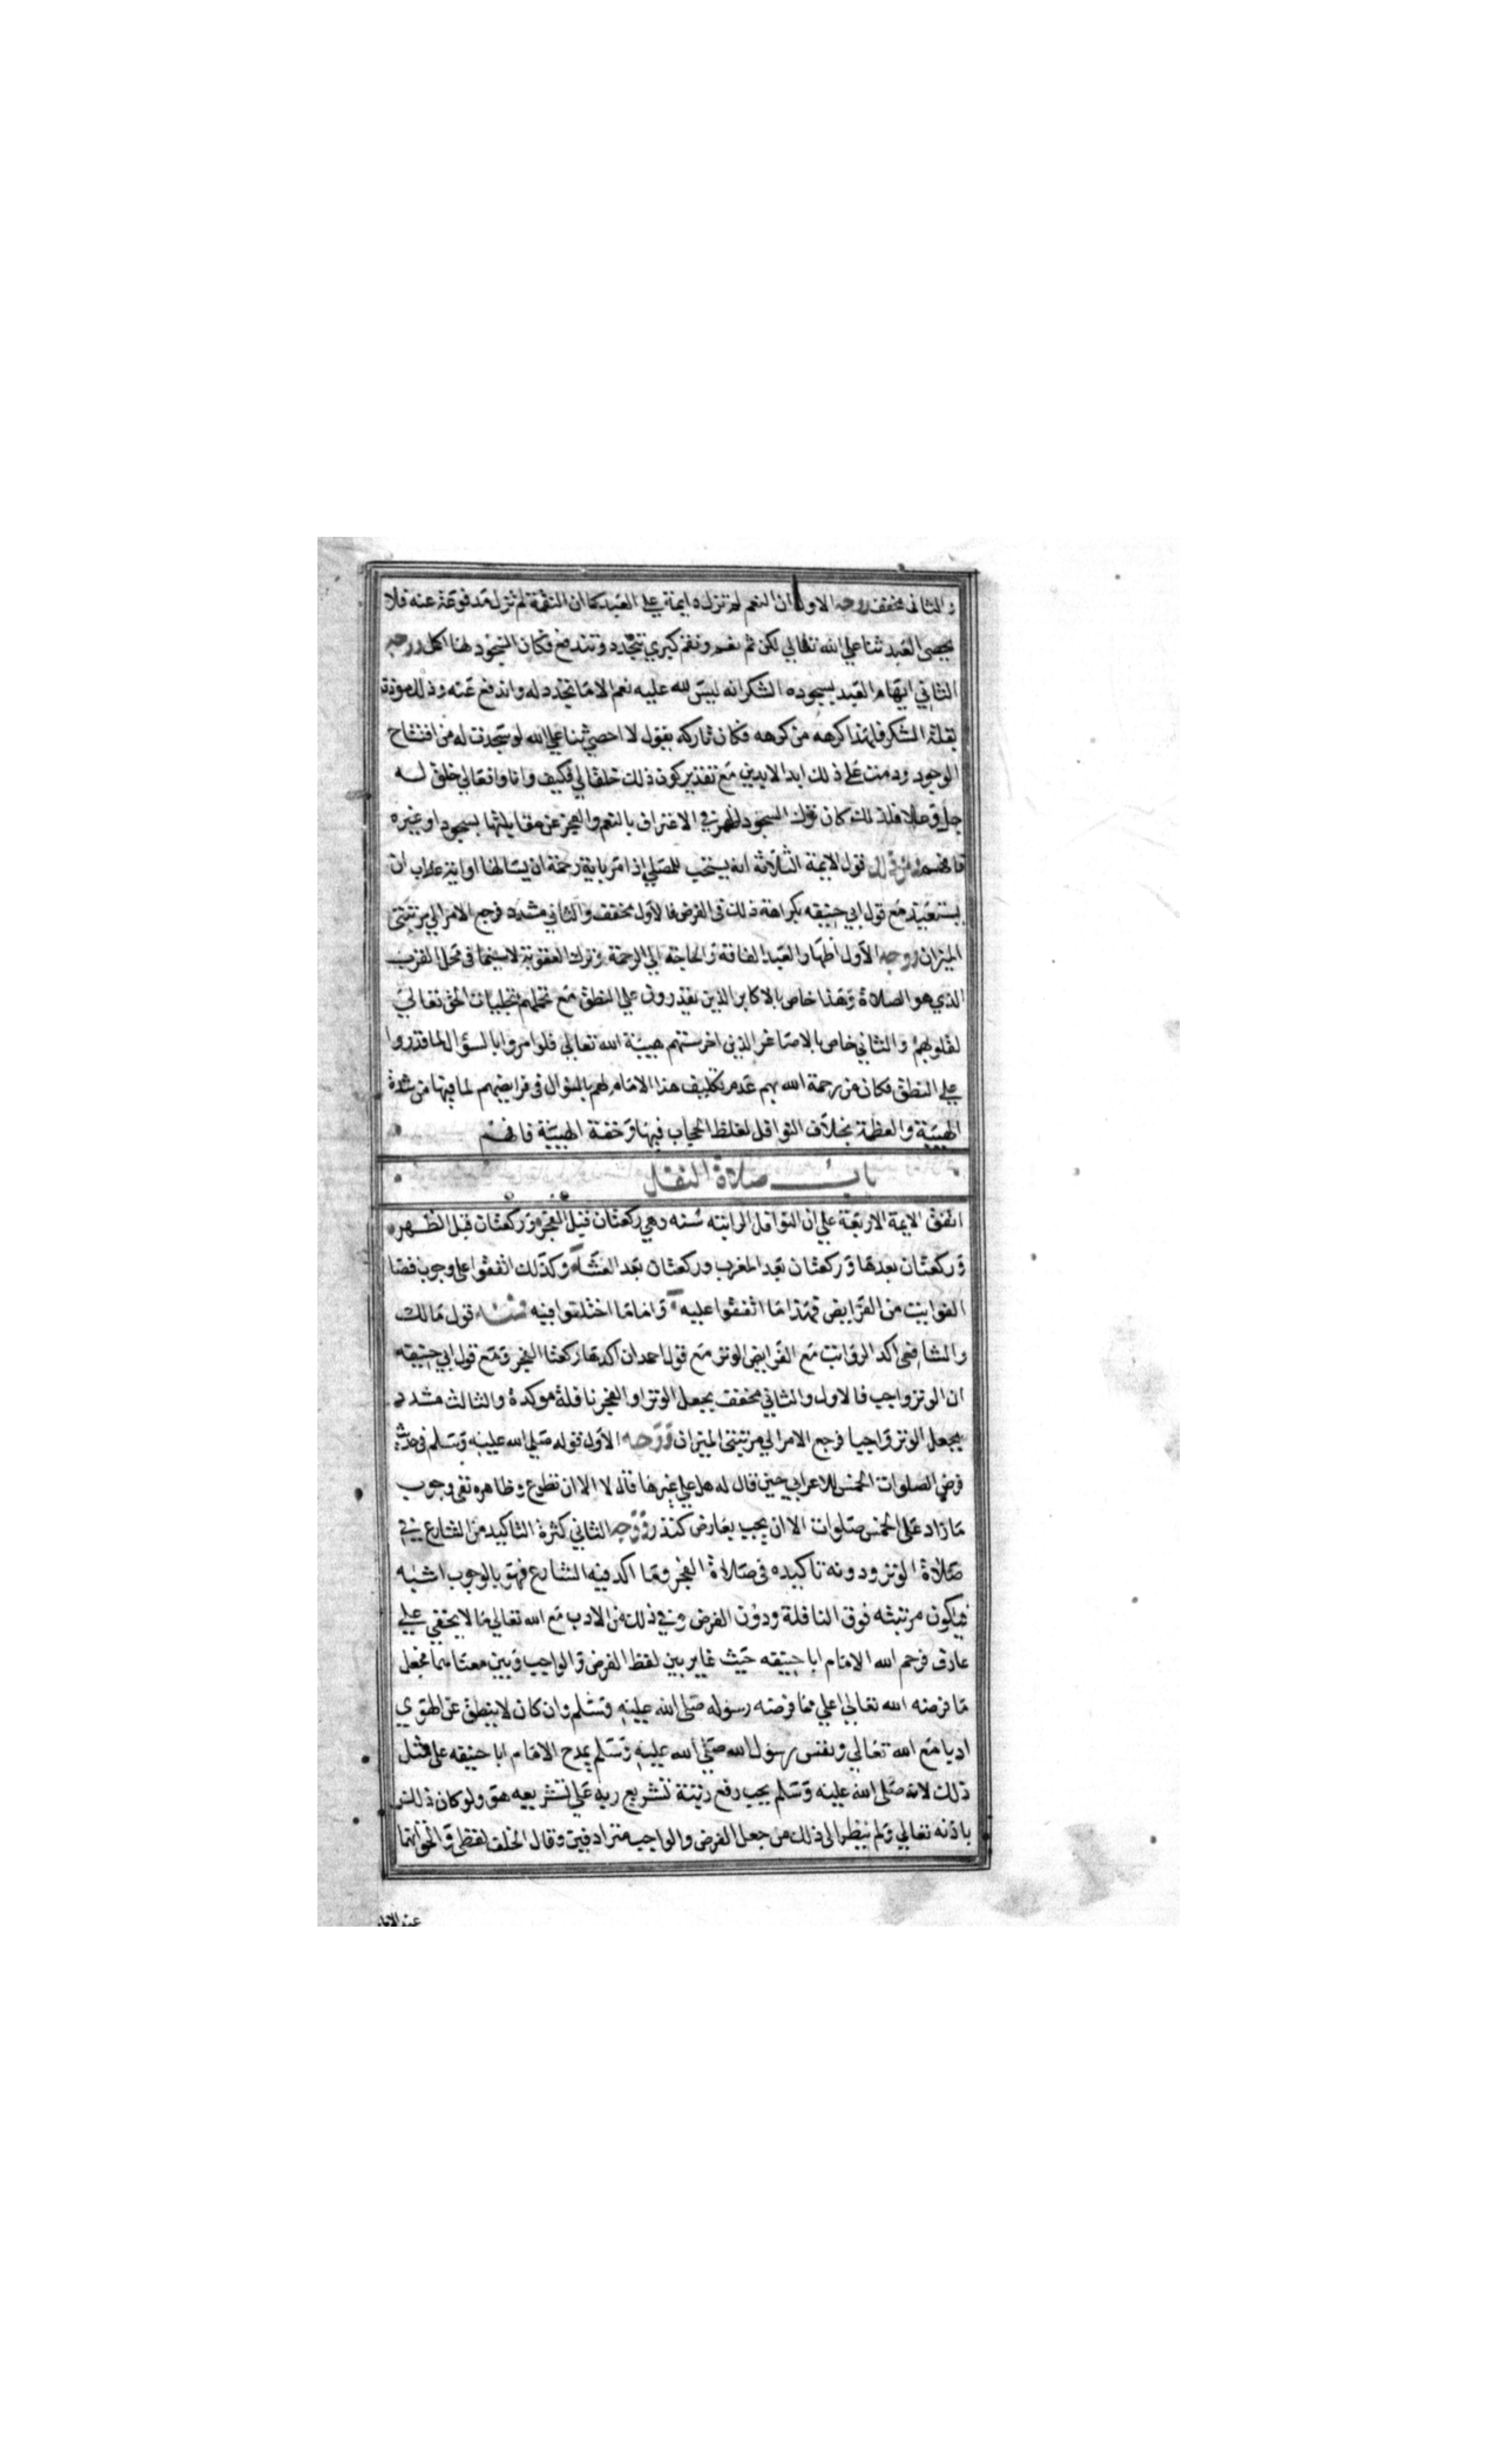 والثاني مخفف ووجه الاول ان النعم لم تزل دايمة علي العبد كما ان النقمة لم تزل مدفوعة عنه فلا
يحصي العبد ثنا علي الله تعالي لكن ثم نعم ونقم كبري تتجدد وتندفع فكان السجود لهنا اكمل ووجه
الثاني ايهام العبد بسجوده الشكر انه ليس لله عليه نعم الا ما تجدد له واندفع عنه وذلك موذن
بقلة الشكر فلهذا كرهه من كرهه فكان تاركه يقول لا احصي ثنا علي الله لو سجدت له من افتتاح
الوجود ودمت علي ذلك ابد الابدين مع تقدير كون ذلك خلقا لي فكيف وانا وافعالي خلق له
جل وعلا فلذلك كان ترك السجود اظهر في الاعتراف بالنعم والعجز عن مقابلتها بسجود او غيره
فافهم ومن ذلك قول الايمة الثلاثة انه يستحب للمصلي اذا مر باية رحمة ان يسالها او اية عذاب ان
يستعيذ مع قول ابي حنيفه بكراهة ذلك في الفرض فالاول مخفف والثاني مشدد فرجع الامر الي مرتبتي
الميزان ووجه الاول اظهار العبد الفاقة والحاجة الي الرحمة وترك العقوبة لا سيما في محل القرب
الذي هو الصلاة وهذا خاص بالاكابر الذين يقدرون علي النطق مع تحملهم تجليات الحق تعالي
لقلوبهم والثاني خاص بالاصاغر الذين اخرستهم هيبة الله تعالي فلو امروا بالسؤال لما قدروا
علي النطق فكان من رحمة الله بهم عدم تكليف هذا الامام لهم بالسؤال في فرايضهم لما فيها من شدة
الهيبة والعظمة بخلاف النوافل لغلظ الحجاب فيها وخفة الهيبة فافهم
باب صلاة النفل
اتفق الايمة الاربعة علي ان النوافل الراتبه سنه وهي ركعتان قبل الفجر وركعتان قبل الظهر
وركعتان بعدها وركعتان بعد المغرب وركعتان بعد العشا وكذلك اتفقوا علي وجوب قضا
الفوايت من الفرايض فهذا ما اتفقوا عليه واما ما اختلفوا فيه قول مالك
والشافعي اكد الرواتب مع الفرايض الوتر مع قول احمد ان اكدها ركعتا الفجر ومع قول ابي حنيفه
ان الوتر واجب فالاول والثاني مخفف بجعل الوتر او الفجر نافلة موكدة والثالث مشدد
بجعل الوتر واجبا فرجع الامر الي مرتبتي الميزان ووجه الاول قوله صلي الله عليه وسلم في حديث
فرض الصلوات الخمس للاعرابي حين قال له هل علي غيرها قال لا الا ان تطوع وظاهره نفي وجوب
ما زاد علي الخمس صلوات الا ان يجب بعارض كنذر ووجه الثاني كثرة التاكيد من الشارع في
صلاة الوتر ودونه تاكيده في صلاة الفجر وما اكد فيه الشارع فهو بالوجوب اشبه
فيكون مرتبته فوق النافلة ودون الفرض وفي ذلك من الادب مع الله تعالي ما لا يخفي علي
عارف فرحم الله الامام ابا حنيفه حيث غاير بين لفظ الفرض والواجب وبين معناهما فجعل
ما فرضه الله تعالي اعلي مما فرضه رسوله صلي الله عليه وسلم وان كان لا ينطق عن الهوي
ادبا مع الله تعالي ونفس رسول الله صلي الله عليه وسلم يمدح الامام ابا حنيفه علي مثل
ذلك لانه صلي الله عليه وسلم يحب رفع رتبة تشريع ربه علي تشريعه هو ولو كان ذلك
باذنه تعالي ولم ينظر الي ذلك من جعل الفرض والواجب مترادفين وقال الخلف لفظي والحق انهما